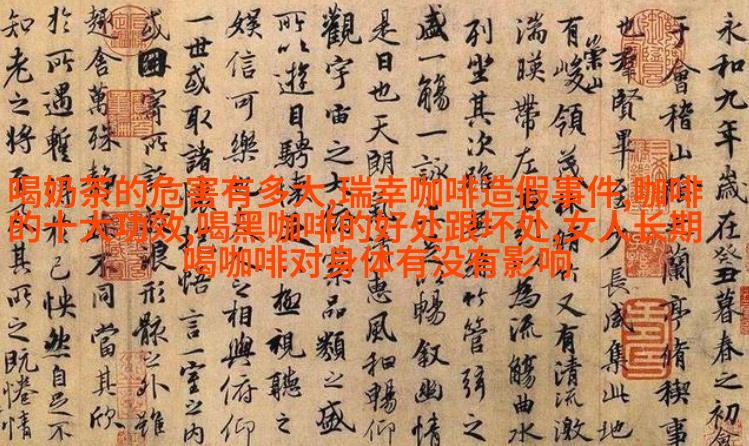 喝奶茶的危害有多大,瑞幸咖啡造假事件,咖啡
的十大功效,喝黑咖啡的好处跟坏处,女人长期
喝咖啡对身体有没有影响
永和九年歲在癸丑暮春之初會
于會稽山蘭亭脩禊事
也羣賢畢至少長咸集此地
有崇山峻領茂林竹又有清流激
湍暎帶左為流觴曲水
列坐其次雖竹管弦之
盛一觴一詠足以暢叙幽情
是日也天朗惠風和暢仰
觀宇宙之大品類之盛
所以遊目騁足以極視聽之
娛信可樂之相與俯仰
一世或取諸悟言一室之內
或因寄所浪形骸之外雖
趣舍萬殊不同當其欣
於所遇蹔於己怏然自足不
知老之將其所之既惓情